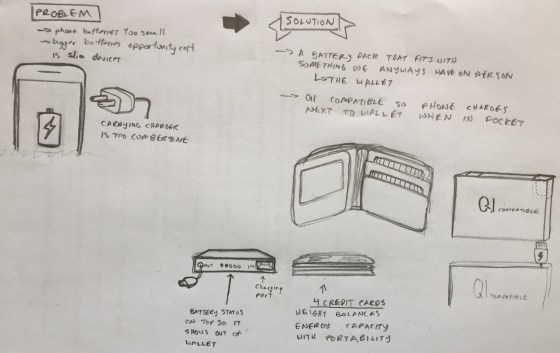 PROBLEM
→ phone batteries too small
→ bigger batteries opportunity cost
is slim devices
CARRYING CHARGER
IS TOO CUMBERSOME
SOLUTION
→ A BATTERY PACK THAT FITS WITH
SOMETHING WE ANYWAYS HAVE ON PERSON
↳ THE WALLET
→ QI COMPATIBLE SO PHONE CHARGES
NEXT TO WALLET WHEN IN POCKET
QI COMPATIBLE
QI COMPATIBLE
OUT
IN
Charging
PORT
BATTERY STATUS
ON TOP SO IT
SHOWS OUT OF
WALLET
4 CREDIT CARDS
HEIGHT BALANCES
ENERGY CAPACITY
WITH PORTABILITY